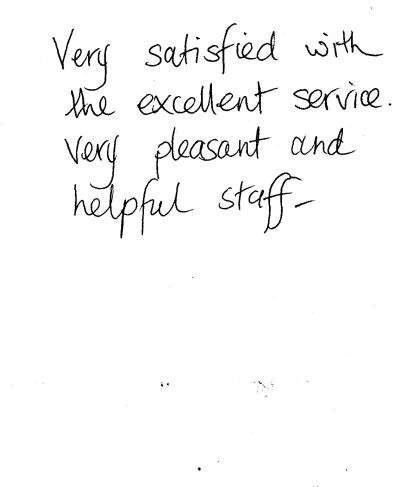 Very satisfied with
the excellent service.
Very pleasant and
helpful staff-